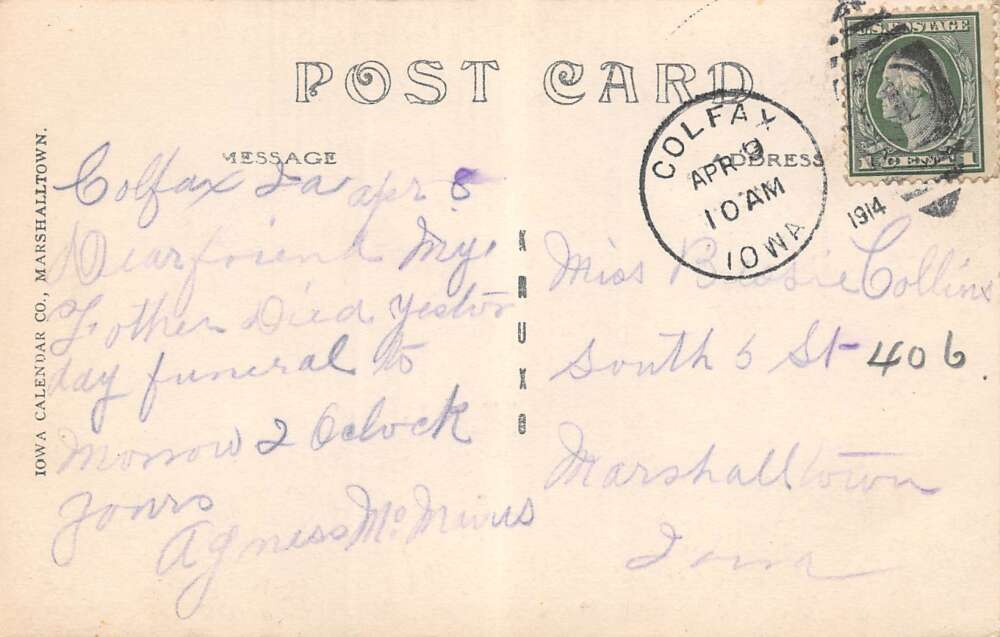 POST CARD
MESSAGE
ADDRESS
U.S. POSTAGE
1 CENT 1
COLFAX
APR 9
10 AM
IOWA
1914
IOWA CALENDAR CO., MARSHALLTOWN.
Colfax Ia apr 8
Dear friend My
Father Died yester
day funeral to
Morrow 2 Oclock
yours
Agness
K R U X O
Miss Collins
South 6 St 406
Marshalltown
Iowa